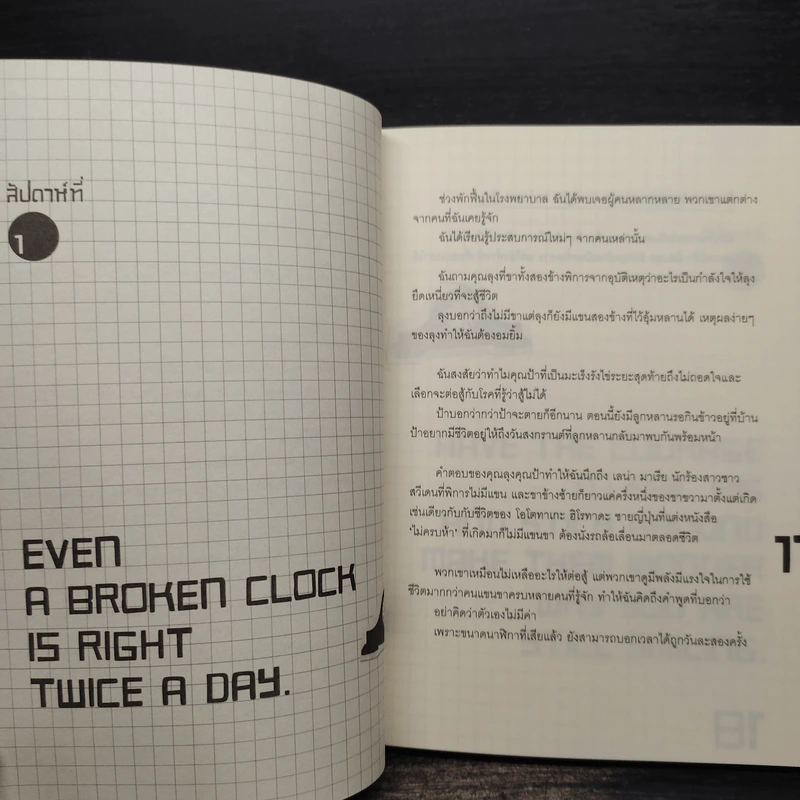 สัปดาห์ที่
1
EVEN
A BROKEN CLOCK
IS RIGHT
TWICE A DAY.
ช่วงพักฟื้นในโรงพยาบาล ฉันได้พบเจอผู้คนหลากหลาย พวกเขาแตกต่าง
จากคนที่ฉันเคยรู้จัก
ฉันได้เรียนรู้ประสบการณ์ใหม่ๆ จากคนเหล่านั้น
ฉันถามคุณลุงที่ขาทั้งสองข้างพิการจากอุบัติเหตุว่าอะไรเป็นกำลังใจให้ลุง
ยึดเหนี่ยวที่จะสู้ชีวิต
ลุงบอกว่าถึงไม่มีขาแต่ลุงก็ยังมีแขนสองข้างที่ไว้อุ้มหลานได้ เหตุผลง่ายๆ
ของลุงทำให้ฉันต้องอมยิ้ม
ฉันสงสัยว่าทำไมคุณป้าที่เป็นมะเร็งรังไข่ระยะสุดท้ายถึงไม่ถอดใจและ
เลือกจะต่อสู้กับโรคที่รู้ว่าสู้ไม่ได้
ป้าบอกว่ากว่าป้าจะตายก็อีกนาน ตอนนี้ยังมีลูกหลานรอกินข้าวอยู่ที่บ้าน
ป้าอยากมีชีวิตอยู่ให้ถึงวันสงกรานต์ที่ลูกหลานกลับมาพบกันพร้อมหน้า
คำตอบของคุณลุงคุณป้าทำให้ฉันนึกถึง เลน่า มาเรีย นักร้องสาวชาว
สวีเดนที่พิการไม่มีแขน และขาข้างซ้ายก็ยาวแค่ครึ่งหนึ่งของขาขวามาตั้งแต่เกิด
เช่นเดียวกับกับชีวิตของ โอโตทาเกะ ฮิโรทาดะ ชายญี่ปุ่นที่แต่งหนังสือ
'ไม่ครบห้า' ที่เกิดมาก็ไม่มีแขนขา ต้องนั่งรถล้อเลื่อนมาตลอดชีวิต
พวกเขาเหมือนไม่เหลืออะไรให้ต่อสู้ แต่พวกเขาดูมีพลังมีแรงใจในการใช้
ชีวิตมากกว่าคนแขนขาครบหลายคนที่รู้จัก ทำให้ฉันคิดถึงคำพูดที่บอกว่า
อย่าคิดว่าตัวเองไม่มีค่า
เพราะขนาดนาฬิกาที่เสียแล้ว ยังสามารถบอกเวลาได้ถูกวันละสองครั้ง
17